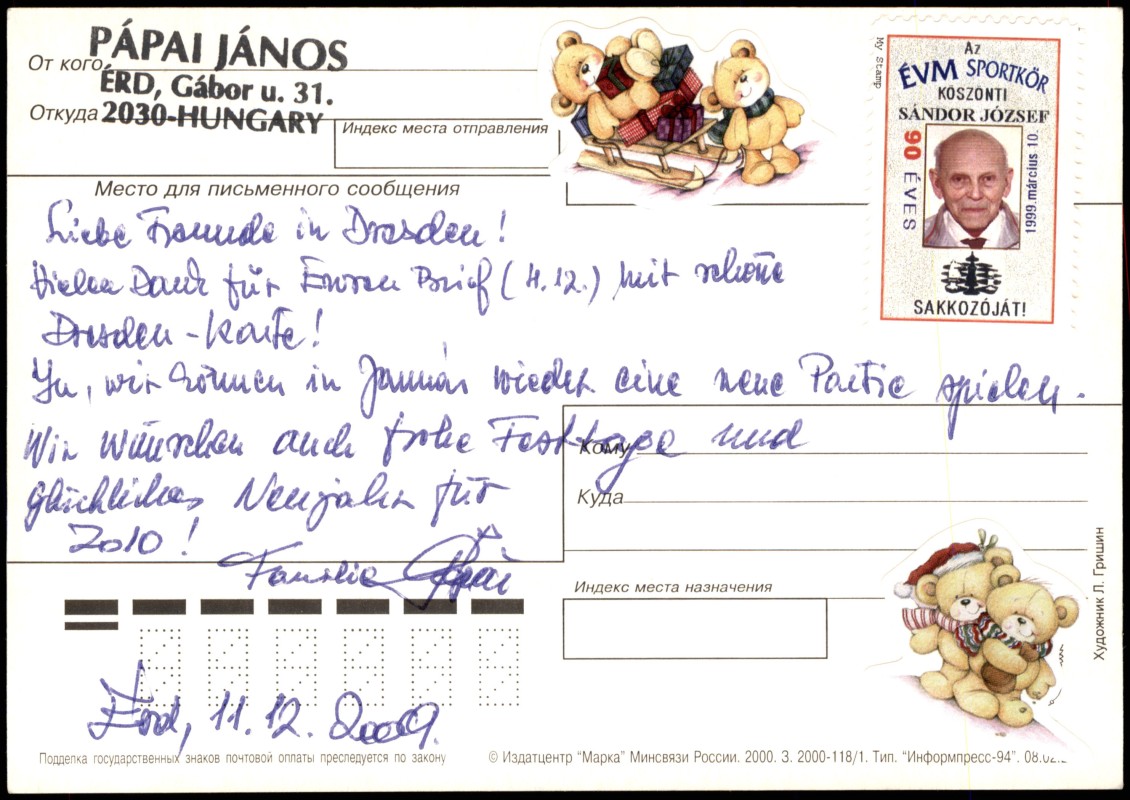 От кого
PÁPAI JÁNOS
ÉRD, Gábor u. 31.
Откуда
2030-HUNGARY
Индекс места отправления
Место для письменного сообщения
My Stamp
Az
ÉVM SPORTKÖR
KÖSZÖNTI
SÁNDOR JÓZSEF
90 ÉVES
1999.március 10.
SAKKOZÓJÁT!
Liebe Freunde in Dresden!
Vielen Dank für Euren Brief (4.12.) mit schöne
Dresden-Karte!
Ja, wir können in Januar wieder eine neue Partie spielen.
Wir wünschen auch frohe Festtage und
glückliches Neujahr für
2010!
Familie Pápai
Кому
Куда
Индекс места назначения
Érd, 11.12.2009.
Художник Л. Гришин
Подделка государственных знаков почтовой оплаты преследуется по закону
© Издатцентр "Марка" Минсвязи России. 2000. З. 2000-118/1. Тип. "Информпресс-94". 08.02.2